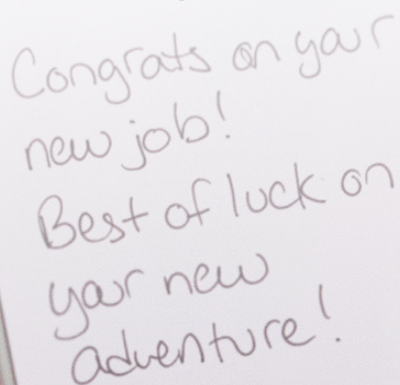 Congrats on your
new job!
Best of luck on
your new
adventure!